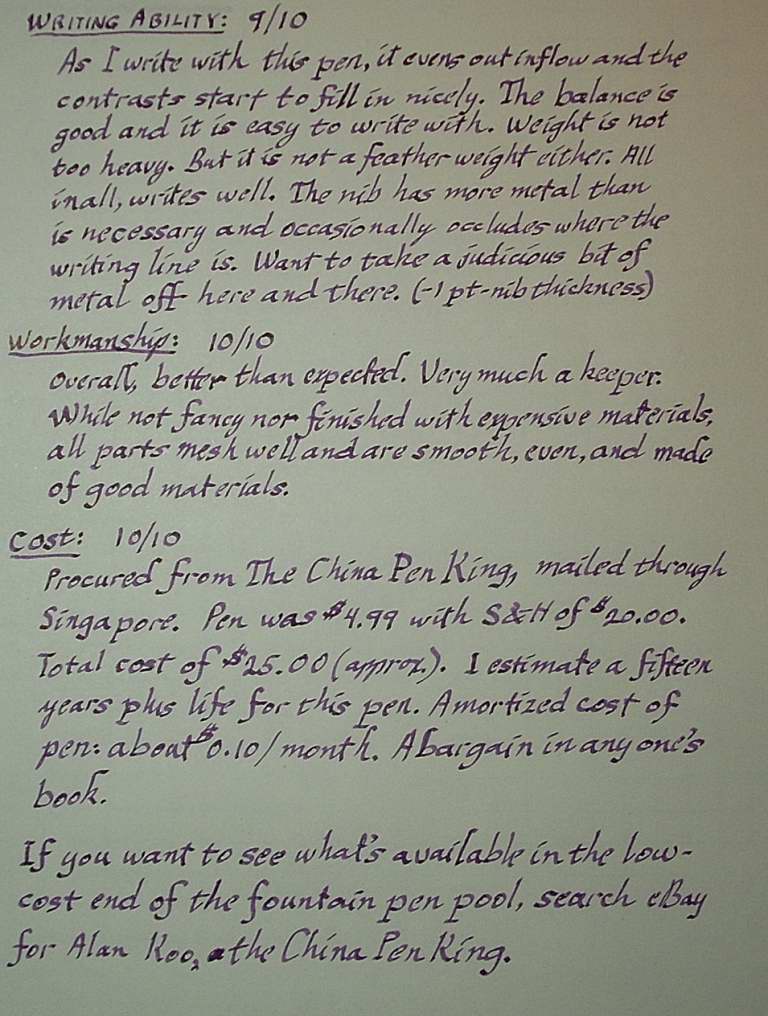 WRITING ABILITY: 9/10
As I write with this pen, it evens out inflow and the
contrasts start to fill in nicely. The balance is
good and it is easy to write with. Weight is not
too heavy. But it is not a feather weight either. All
in all, writes well. The nib has more metal than
is necessary and occasionally occludes where the
writing line is. Want to take a judicious bit of
metal off here and there. (-1 pt-nib thickness)
Workmanship: 10/10
Overall, better than expected. Very much a keeper.
While not fancy nor finished with expensive materials,
all parts mesh well and are smooth, even, and made
of good materials.
Cost: 10/10
Procured from The China Pen King, mailed through
Singapore. Pen was $4.99 with S&H of $20.00.
Total cost of $25.00 (approx.). I estimate a fifteen
years plus life for this pen. Amortized cost of
pen: about $0.10/month. A bargain in any one's
book.
If you want to see what's available in the low-
cost end of the fountain pen pool, search eBay
for Alan Koo, the China Pen King.